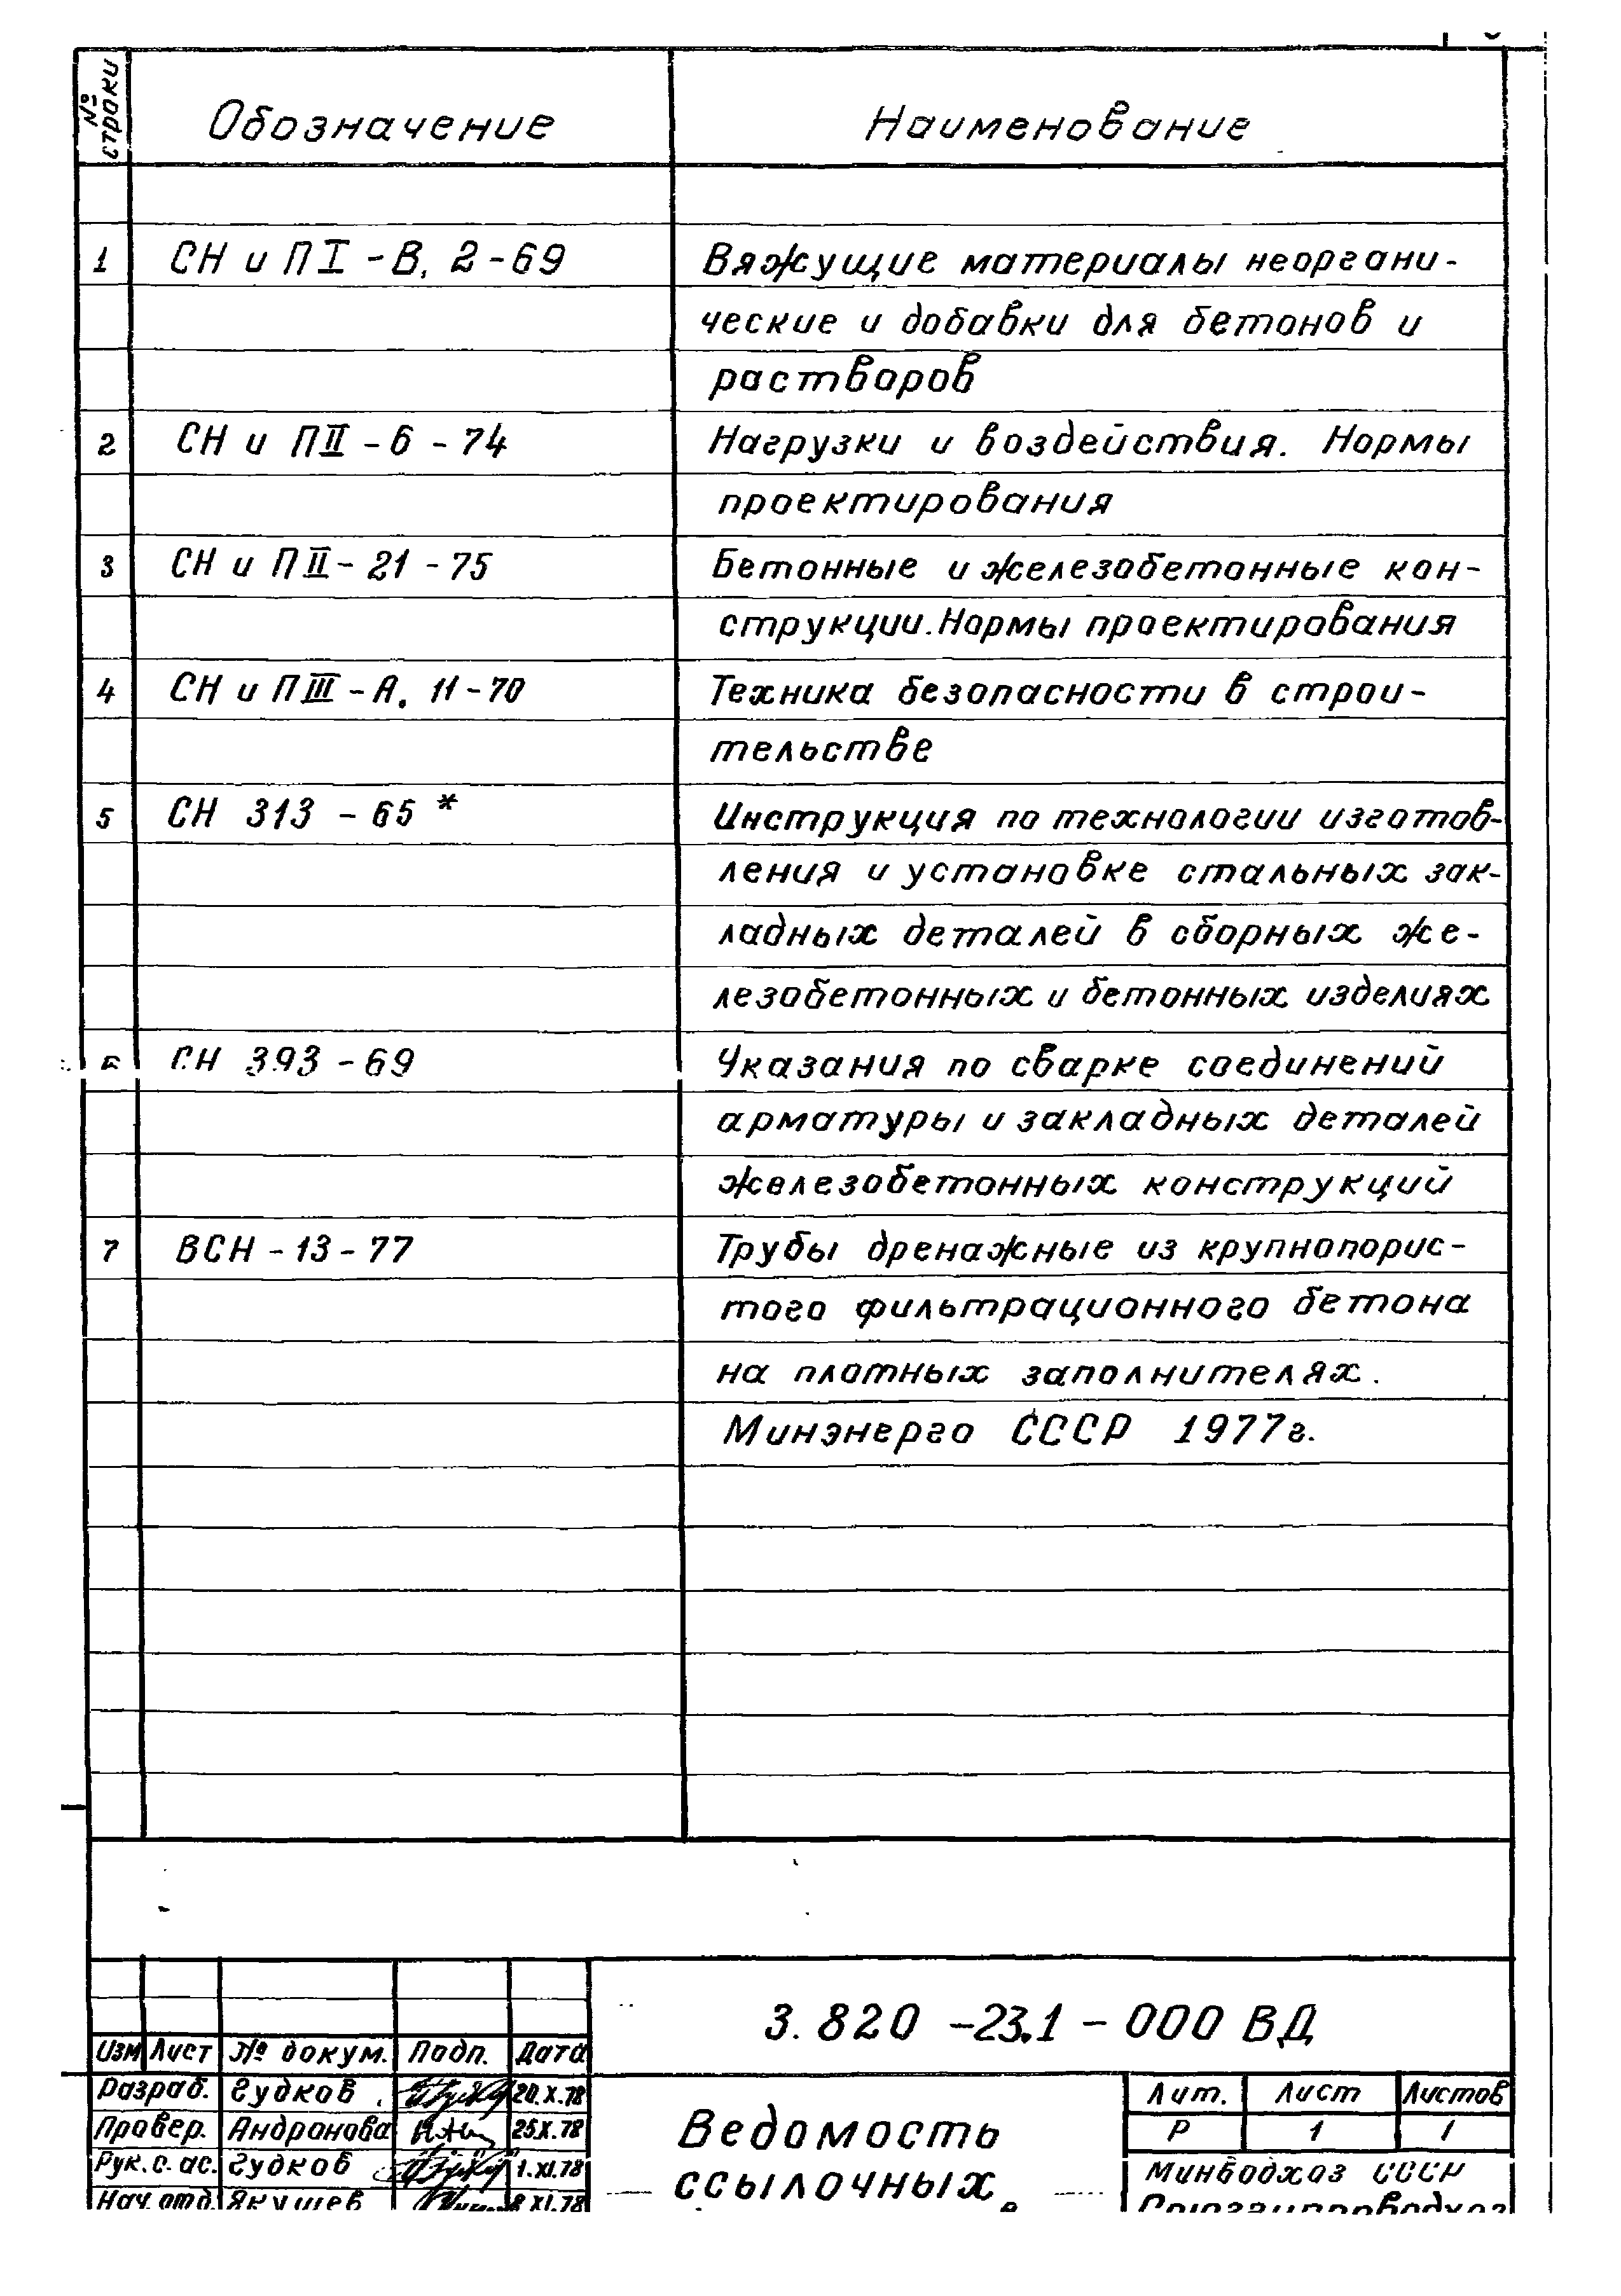 № строки Обозначение Наименование
1 СН и П I - В. 2 - 69 Вяжущие материалы неоргани-
ческие и добавки для бетонов и
растворов
2 СН и П II - 6 - 74 Нагрузки и воздействия. Нормы
проектирования
3 СН и П II - 21 - 75 Бетонные и железобетонные кон-
струкции. Нормы проектирования
4 СН и П III - А. 11 - 70 Техника безопасности в строи-
тельстве
5 СН 313 - 65 * Инструкция по технологии изготов-
ления и установке стальных зак-
ладных деталей в сборных же-
лезобетонных и бетонных изделиях
6 СН 393 - 69 Указания по сварке соединений
арматуры и закладных деталей
железобетонных конструкций
7 ВСН - 13 - 77 Трубы дренажные из крупнопорис-
того фильтрационного бетона
на плотных заполнителях.
Минэнерго СССР 1977г.
3.820 - 23.1 - 000 ВД
Изм Лист № докум. Подп. Дата
Разраб. Гудков 20.X.78
Провер. Андронова 25.X.78
Рук. с. ас. Гудков 1.XI.78
Нач. отд. Якушев 8 XI.78
Ведомость
ссылочных
Лит. Лист Листов
Р 1 1
Минводхоз СССР
Союзгипроводхоз